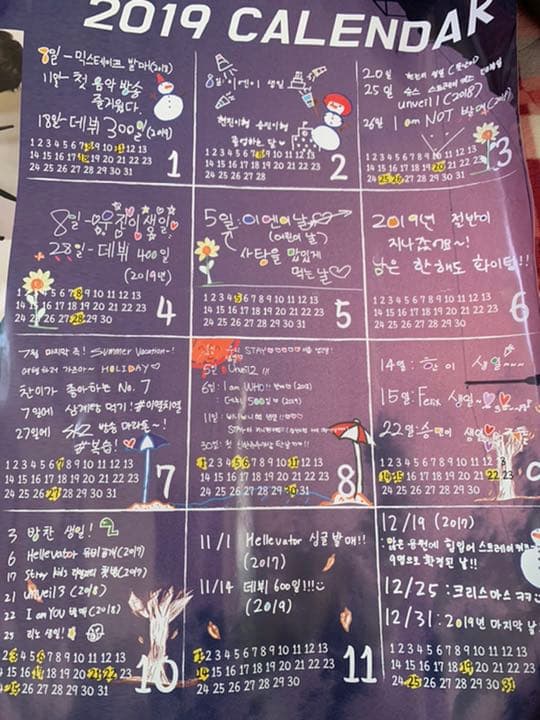 2019 CALENDAR
8일 - 믹스테이프 발매 (2018)
11일 - 첫 음악 방송
즐거웠다.
18일 - 데뷔 300일 (2019)
1 2 3 4 5 6 7 8 9 10 11 12 13
14 15 16 17 18 19 20 21 22 23
24 25 26 27 28 29 30 31
1
8일 이엔이 생일
현진이형 승민이형
졸업하는 달
1 2 3 4 5 6 7 8 9 10 11 12 13
14 15 16 17 18 19 20 21 22 23
24 25 26 27 28
2
20일 현진 생일
25일 슥스 스트레이 키즈 데뷔일
unveil 1 (2018)
26일 I am NOT 발매 (2018)
1 2 3 4 5 6 7 8 9 10 11 12 13
14 15 16 17 18 19 20 21 22 23
24 25 26 27 28 29 30 31
3
8일 - 우진이 생일
28일 - 데뷔 400일
(2019년)
1 2 3 4 5 6 7 8 9 10 11 12 13
14 15 16 17 18 19 20 21 22 23
24 25 26 27 28 29 30
4
5일 : 이엔이 날
(어린이 날)
사탕을 맘껏
먹는 날
1 2 3 4 5 6 7 8 9 10 11 12 13
14 15 16 17 18 19 20 21 22 23
24 25 26 27 28 29 30 31
5
2019년 절반이
지나갔어요~!
남은 한해도 화이팅!!
1 2 3 4 5 6 7 8 9 10 11 12 13
14 15 16 17 18 19 20 21 22 23
24 25 26 27 28 29 30
6
7월 마지막 주! Summer Vacation~!
HOLIDAY
찬이가 좋아하는 No. 7
7일에 삼계탕 먹기! #이열치열
27일에 방송 마라톤~!
#복습!
1 2 3 4 5 6 7 8 9 10 11 12 13
14 15 16 17 18 19 20 21 22 23
24 25 26 27 28 29 30 31
7
STAY
5일 Unveil 2 !!!
6일 : I am WHO (2018)
500일 (2019)
11일 :
30일 : 첫
1 2 3 4 5 6 7 8 9 10 11 12 13
14 15 16 17 18 19 20 21 22 23
24 25 26 27 28 29 30 31
8
14일 : 한이 생일~
15일 : Felix 생일
22일 : 승민이 생일
1 2 3 4 5 6 7 8 9 10 11 12 13
14 15 16 17 18 19 20 21 22 23
24 25 26 27 28 29 30
9
3 방찬 생일!
6 Hellevator 뮤비공개 (2017)
17 Stray kids 리얼리티 첫방 (2017)
21 unveil 3 (2018)
22 I am YOU 컴백 (2018)
25 리노 생일!
1 2 3 4 5 6 7 8 9 10 11 12 13
14 15 16 17 18 19 20 21 22 23
24 25 26 27 28 29 30 31
10
11/1 Hellevator 싱글 발매!!
(2017)
11/14 데뷔 600일!!!
(2019)
1 2 3 4 5 6 7 8 9 10 11 12 13
14 15 16 17 18 19 20 21 22 23
24 25 26 27 28 29 30
11
12/19 (2017)
: 많은 응원에 힘입어 스트레이 키즈
9명으로 확정된 날!!
12/25 : 크리스마스 ㅋㅋ
12/31 : 2019년 마지막 날
1 2 3 4 5 6 7 8 9 10 11 12 13
14 15 16 17 18 19 20 21 22 23
24 25 26 27 28 29 30 31